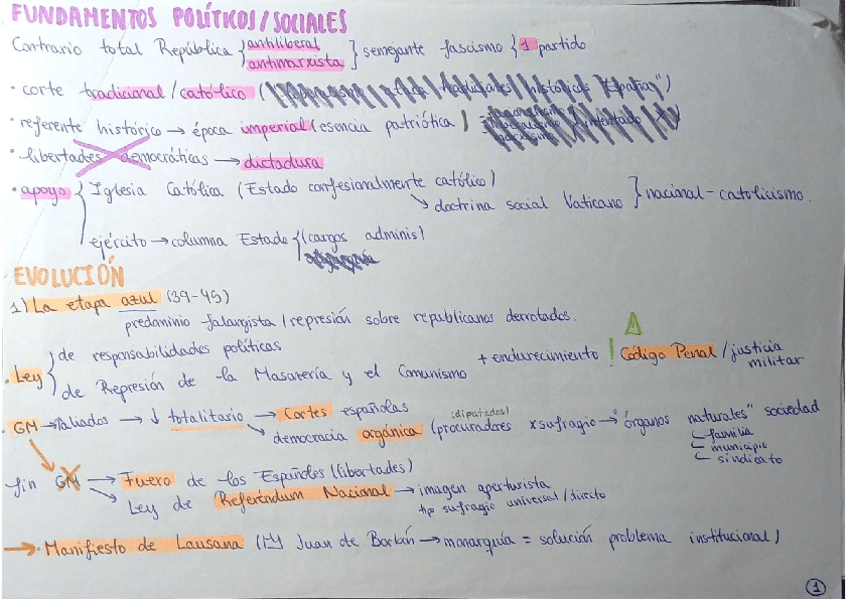 FUNDAMENTOS POLÍTICOS/SOCIALES
Contrario total República { antiliberal antimarxista } semejante fascismo { 1 partido
· corte tradicional/católico (
· referente histórico → época imperial (esencia patriótica)
· libertades democráticas → dictadura
· apoyo { Iglesia Católica (Estado confesionalmente católico)
↘ doctrina social Vaticano } nacional-catolicismo.
ejército → columna Estado { (cargos adminis)
EVOLUCIÓN
1) La etapa azul (39-45)
predominio falangista / represión sobre republicanos derrotados.
· Ley { de responsabilidades políticas
de Represión de la Masonería y el Comunismo + endurecimiento ! Código Penal / justicia militar
· GM → aliados → ↓ totalitario → Cortes españolas
↘ democracia orgánica (procuradores (diputados) x sufragio → "órganos naturales" sociedad
familia
municipio
sindicato
fin GM → Fuero de los Españoles (libertades)
↘ Ley de Referéndum Nacional → imagen aperturista
sufragio universal / directo
→ · Manifiesto de Lausana ( Juan de Borbón → monarquía = solución problema institucional)
1